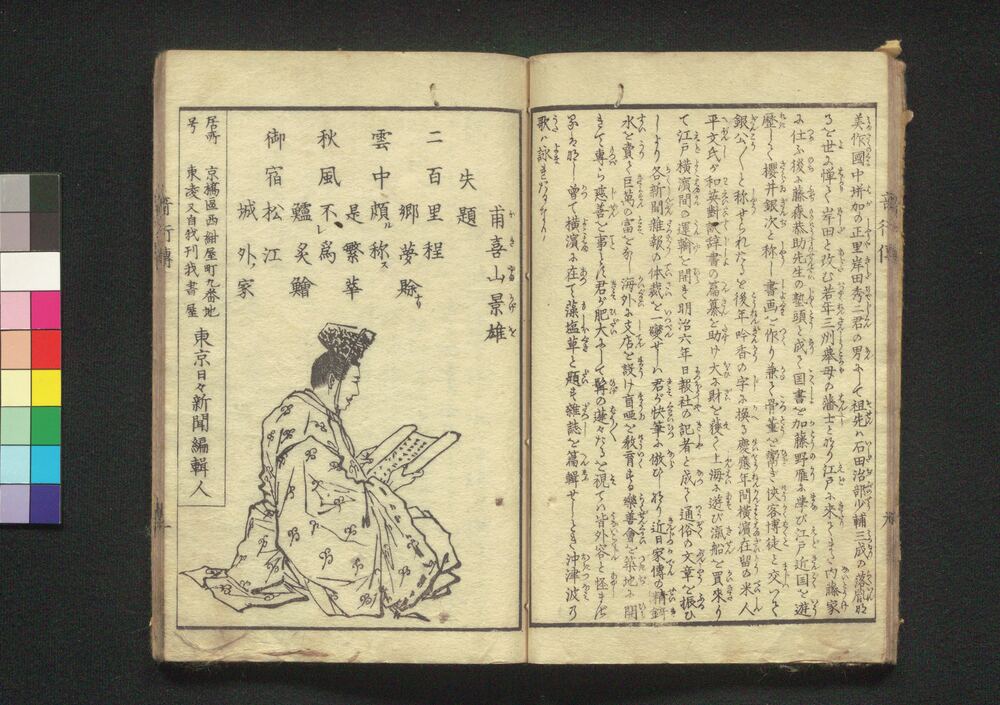 美作國中垪加の正里岸田秀二君の男にして祖先ハ石田治部少輔三成の落胤
るを世に憚て岸田と改む若年三州挙母の藩士と為り江戸に来て内藤家
に仕ふ後ち藤森恭助先生の塾頭と成る国書を加藤野雁に学び江戸近国を遊
歴して櫻井銀次と称し書画を作り兼て骨董を鬻ぎ侠客博徒と交つて
銀公〱と称せられたるを後年吟香の字に換る慶應年間横濱在留の米人
平文氏が和英對訳辞書の編纂を助け大に財を獲て上海に遊び滊船を買来り
て江戸横濱間の運輸を開き明治六年日報社の記者と成て通俗の文章を振ひ
しより各新聞雑報の体裁を一変せしハ君が快筆に倣ひしなり近日家傳の精錡
水を賣て巨萬の富を為し海外に支店を設け盲唖を教育する樂善會を築地に開
きて専ら慈善を事とす君が肥大にして鬚の蓬々たるを視てハ皆外容を怪まざる
ハなし曽て横濱に在て藻塩草と題する雑誌を編輯せしとき沖津波の
歌ハ詠まれたるなり
甫喜山景雄
失題
二百里程郷夢賒
雲中頗ル称ス是繁華
秋風不レ為鱸炙鱠
御宿松江城外ノ家
居所 京橋區西紺屋町九番地
号 東洿又自我刊我書屋
東京日々新聞編輯人